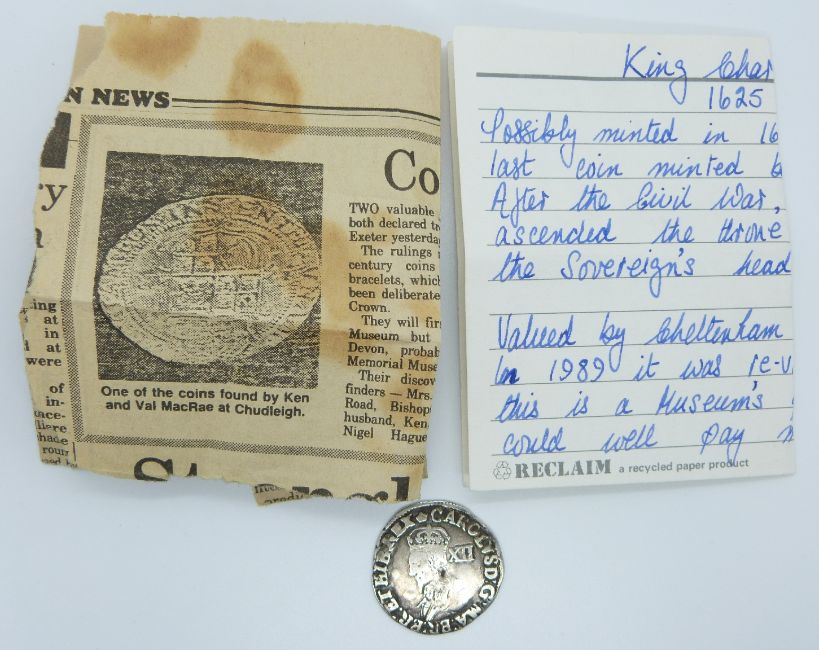 N NEWS
ry
Co
TWO valuable
both declared
Exeter yesterda
The rulings
century coins
bracelets, which
been deliberate
Crown.
They will fir
Museum but
Devon, probab
Memorial Muse
Their discov
finders — Mrs.
Road, Bishop
husband, Ken
Nigel Hague
One of the coins found by Ken
and Val MacRae at Chudleigh.
ing
at
in
at
were
of
in-
nce-
King Char
1625
Possibly minted in 16
last coin minted b
After the Civil War,
ascended the throne
the Sovereign's head
Valued by Cheltenham
In 1989 it was re-v
this is a Museum's
could well pay
RECLAIM a recycled paper product
CAROLVS D G MA BR FR ET HIB REX
XII